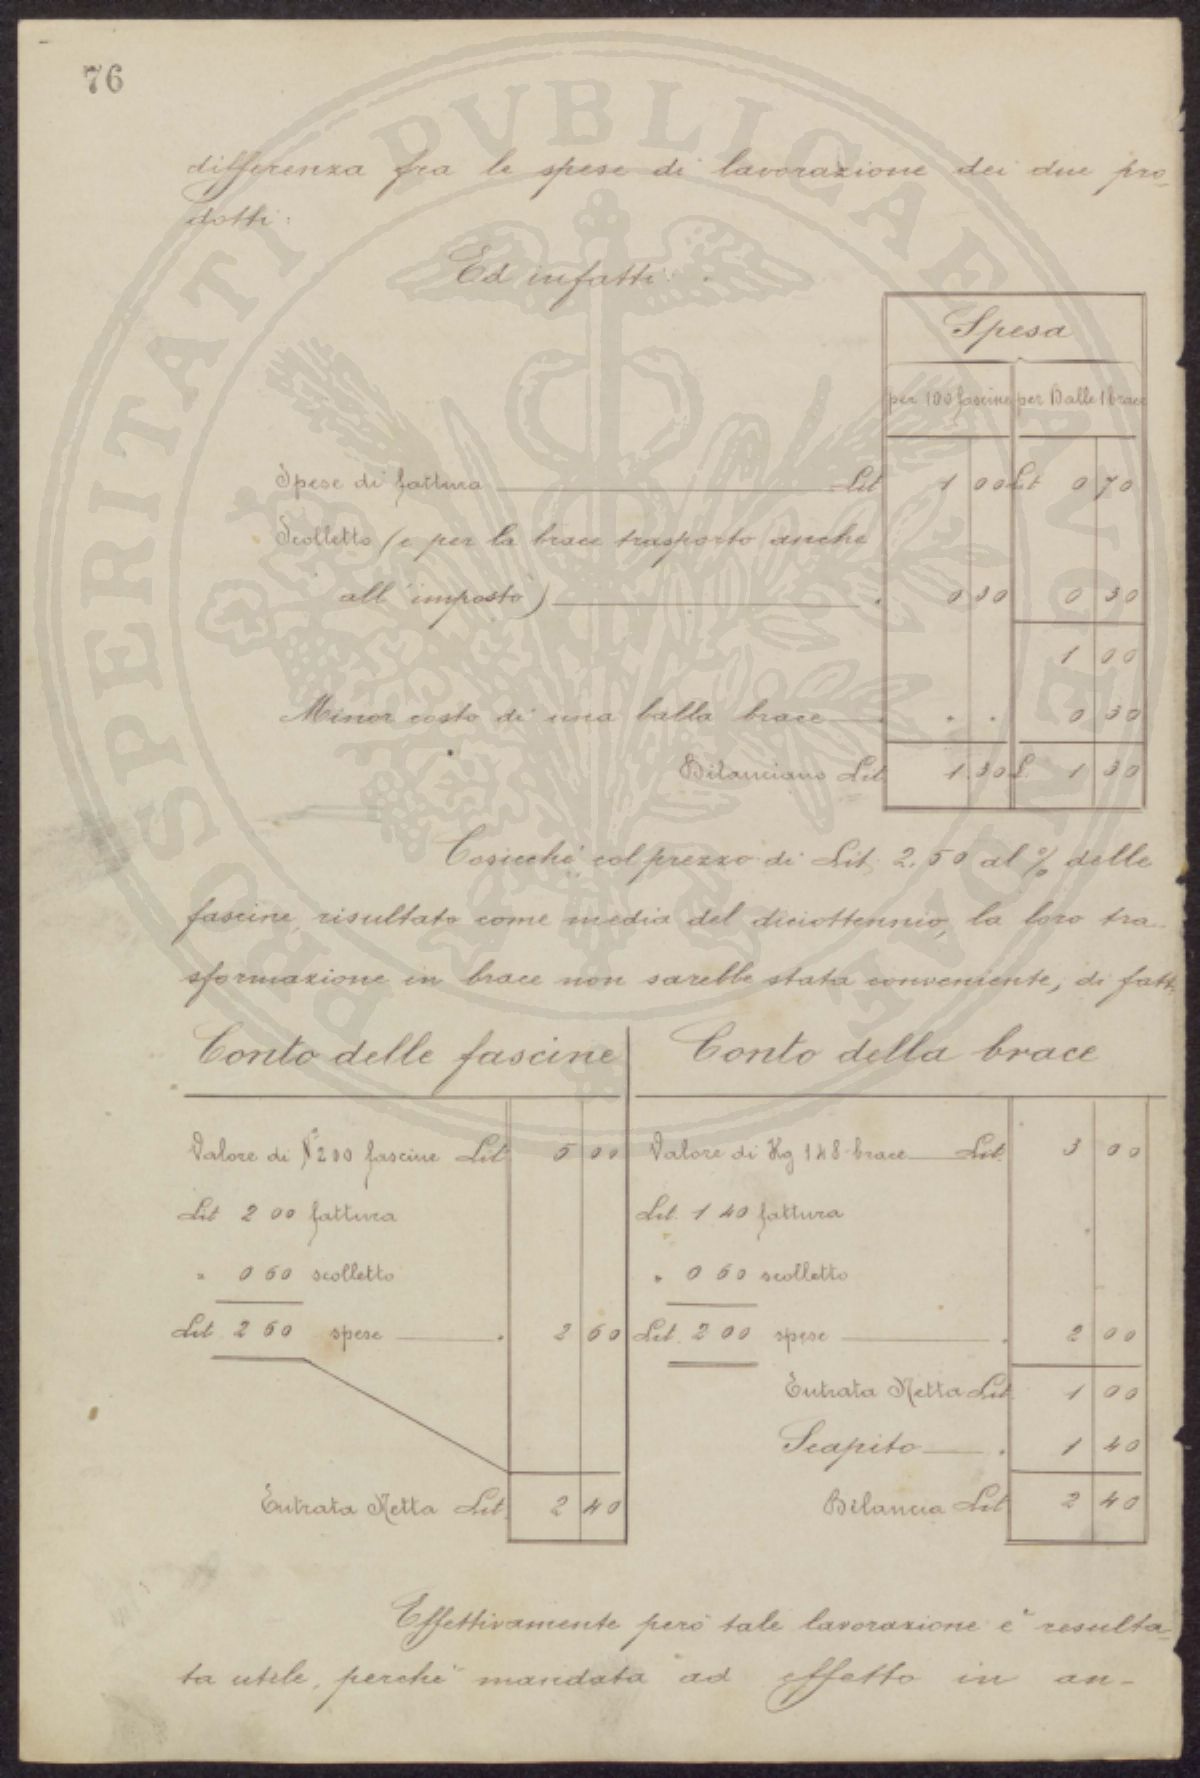 76
PROSPERITATI PVBLICAE AVGENDAE
differenza fra le spese di lavorazione dei due pro-
dotti:
Ed infatti:
Spesa
per 100 fascine per Balle 1 brace
Spese di fattura Lit 1 00 Lit 0 70
Scolletto (e per la brace trasporto anche
all'imposto) 0 30 0 30
1 00
Minor costo di una balla brace . . 0 30
Bilanciano Lit 1.30 L. 1 30
Cosicché col prezzo di Lit. 2.50 al % delle
fascine, risultato come media del diciottennio, la loro tra-
sformazione in brace non sarebbe stata conveniente; di fatt.
Conto delle fascine Conto della brace
Valore di N° 200 fascine Lit 5 00 Valore di Kg 148 brace Lit. 3 00
Lit 2 00 fattura Lit. 1 40 fattura
" 0 60 scolletto " 0 60 scolletto
Lit 2 60 spese 2 60 Lit. 2 00 spese 2 00
Entrata Netta Lit. 1 00
Scapito 1 40
Entrata Netta Lit. 2 40 Bilancia Lit 2 40
Effettivamente però tale lavorazione è resulta-
ta utile, perché mandata ad effetto in an-